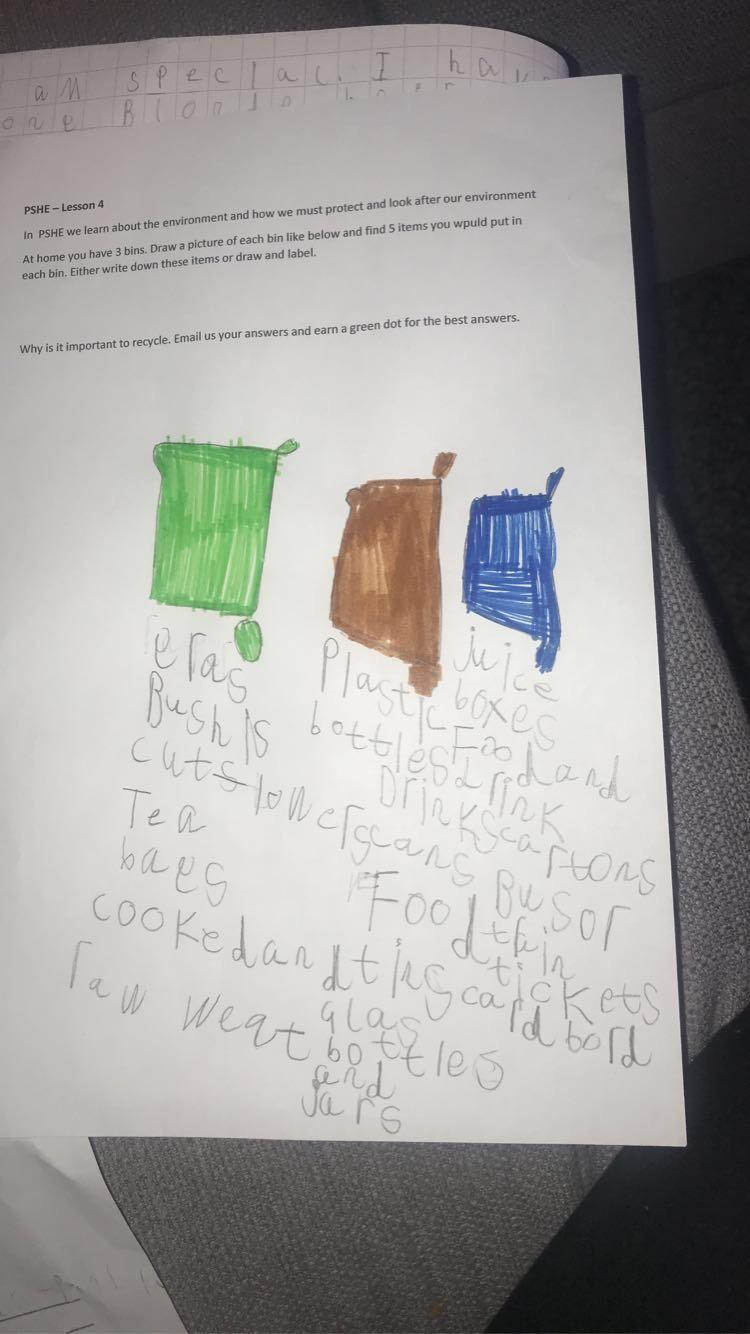 am special. I ha
one Blond
PSHE – Lesson 4
In PSHE we learn about the environment and how we must protect and look after our environment
At home you have 3 bins. Draw a picture of each bin like below and find 5 items you wpuld put in
each bin. Either write down these items or draw and label.
Why is it important to recycle. Email us your answers and earn a green dot for the best answers.
eras
Bush Is
cuts flowers
Tea
baes
cooked and
raw weat
Plastic
bottles
Drinks
cans
Food
tins
glas
bottles
and
Jars
juice
boxes
Food and
drink
cartons
Bus or
tickets
card bord